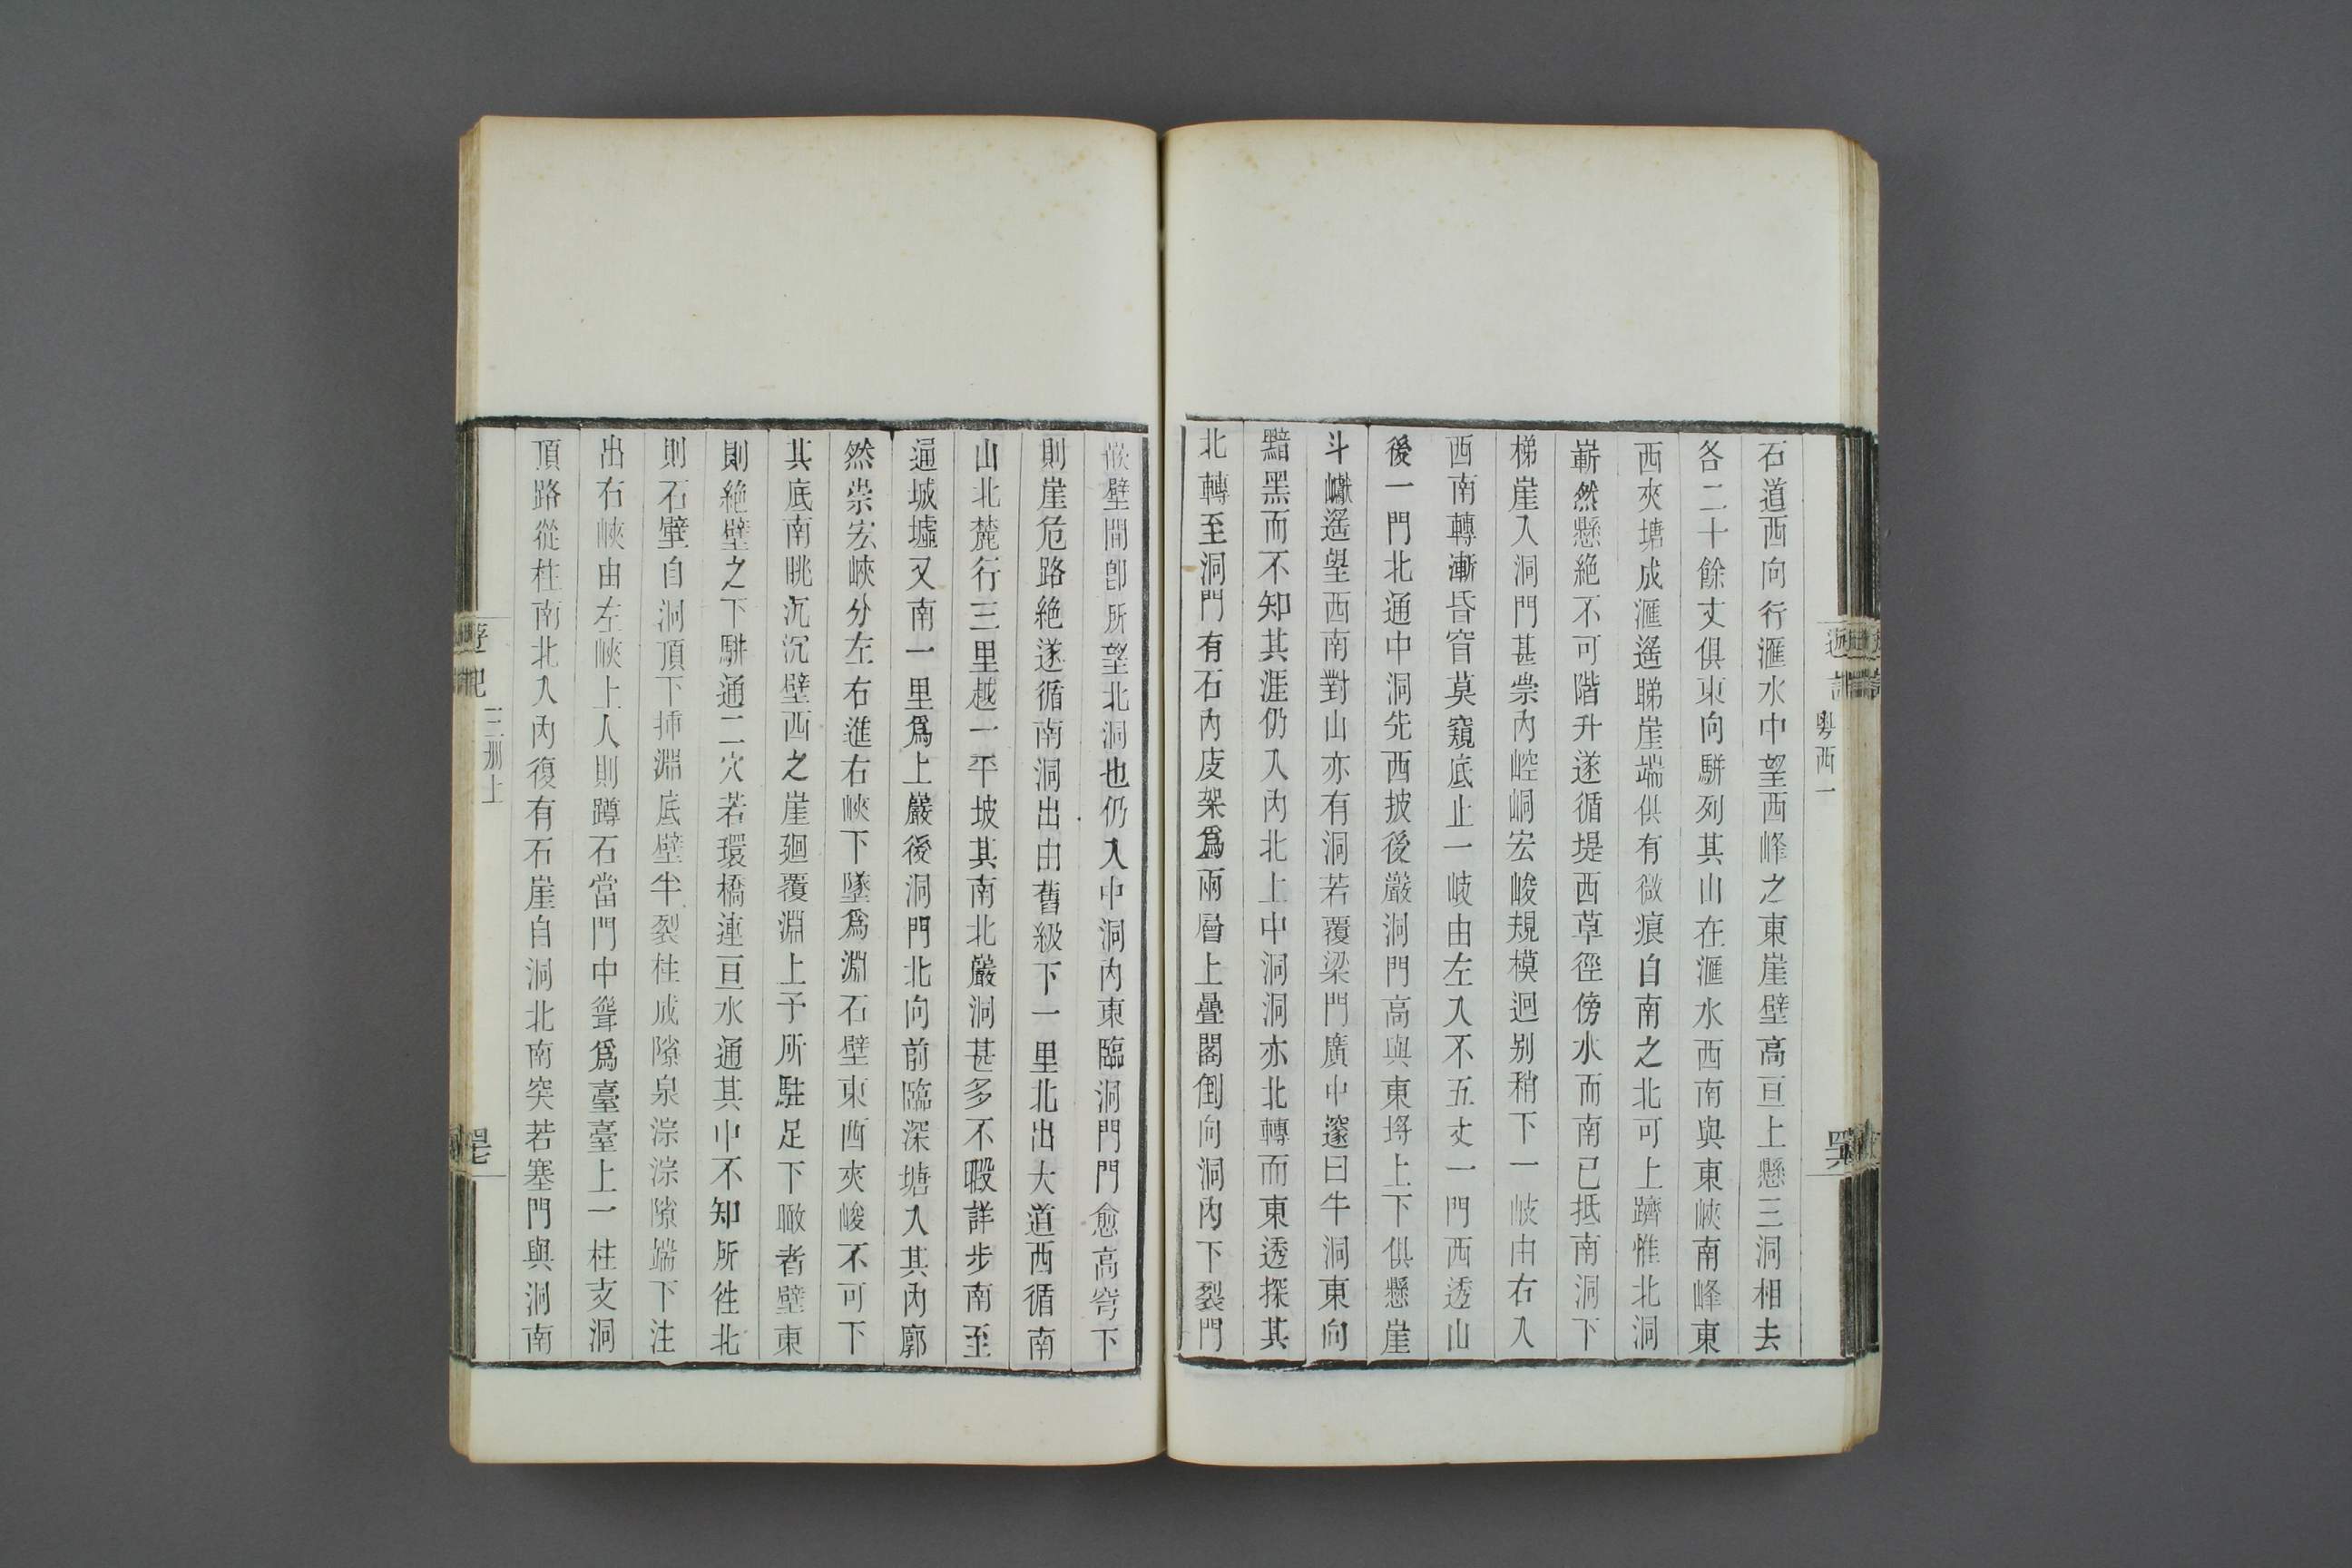 粵西一
石道西向行滙水中望西峰之東崖壁高亘上懸三洞相去
各二十餘丈俱東向駢列其山在滙水西南與東峽南峰東
西夾塘成滙遙睇崖端俱有微痕自南之北可上躋惟北洞
嶄然懸絶不可階升遂循堤西草徑傍水而南已抵南洞下
梯崖入洞門甚崇內崆峒宏峻規模迥别稍下一岐由右入
西南轉漸昏窅莫窺底止一岐由左入不五丈一門西透山
後一門北通中洞先西披後巖洞門高與東埓上下俱懸崖
斗巘遙望西南對山亦有洞若覆梁門廣中邃曰牛洞東向
黯黑而不知其涯仍入內北上中洞洞亦北轉而東透探其
北轉至洞門有石內庋架爲兩層上疊閣倒向洞內下裂門
嵌壁間卽所望北洞也仍入中洞內東臨洞門門愈高穹下
則崖危路絶遂循南洞出由舊級下一里北出大道西循南
山北麓行三里越一平坡其南北巖洞甚多不暇詳步南至
通城墟又南一里爲上巖後洞門北向前臨深塘入其內廓
然崇宏峽分左右進右峽下墜爲淵石壁東西夾峻不可下
其底南眺沉沉壁西之崖廻覆淵上予所駐足下瞰者壁東
則絶壁之下駢通二穴若環橋連亘水通其中不知所徃北
則石壁自洞頂下揷淵底壁半裂柱成隙泉淙淙隙端下注
出右峽由左峽上人則蹲石當門中聳爲臺臺上一柱支洞
頂路從柱南北入內復有石崖自洞北南突若塞門與洞南
遊記
三册上